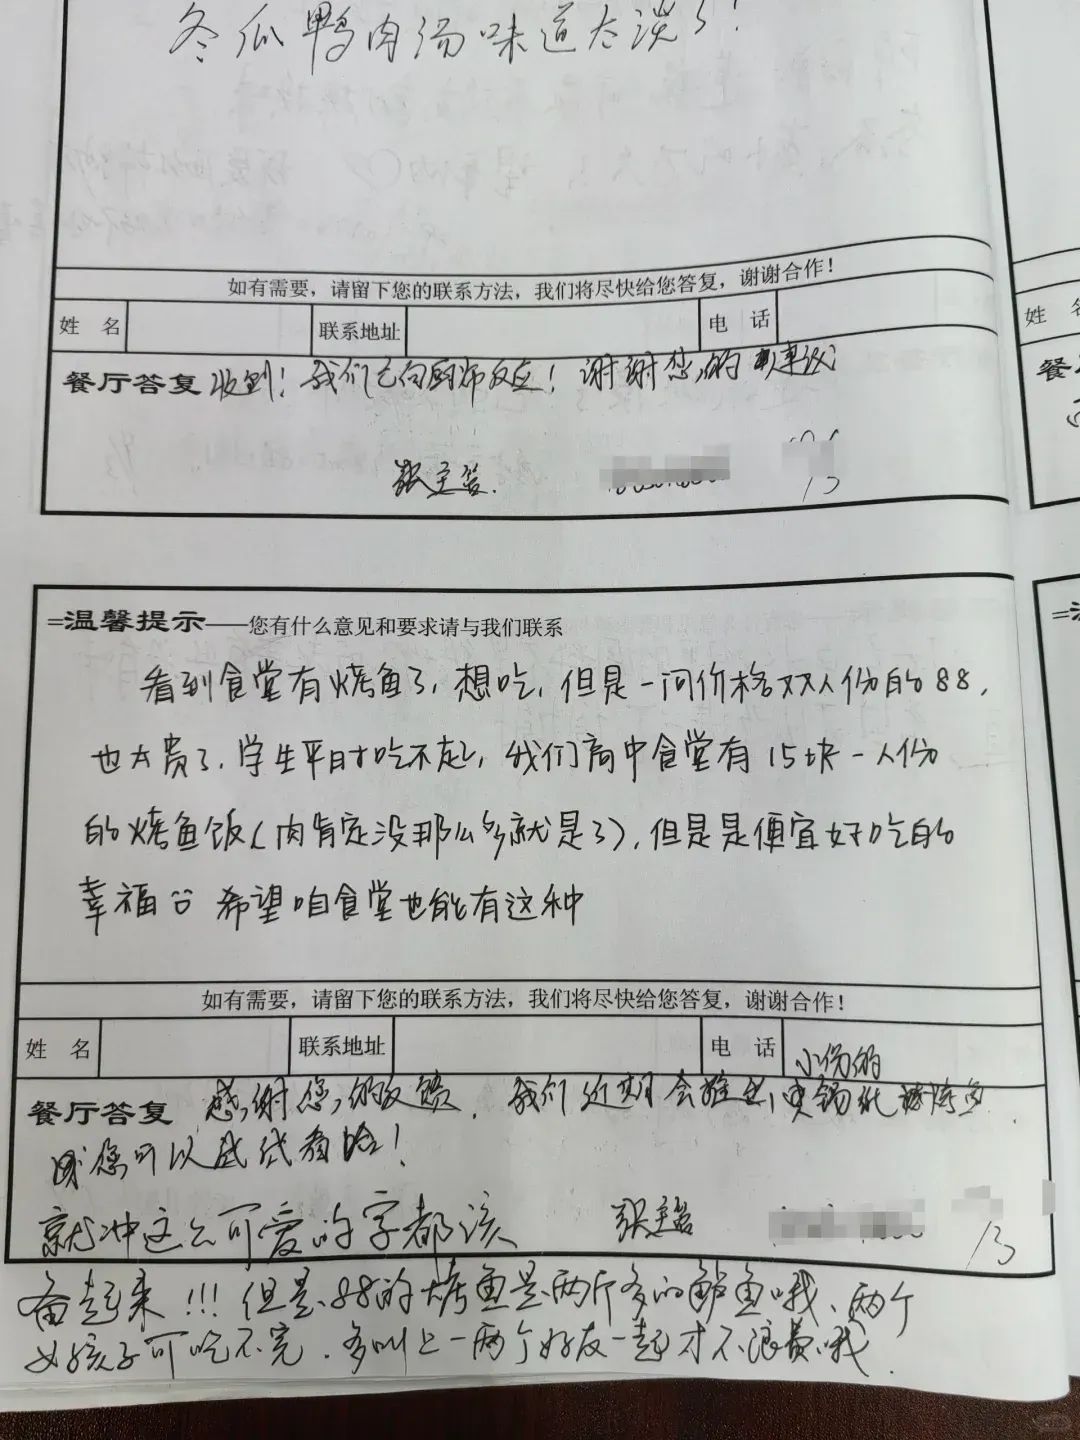 冬瓜鸭肉汤味道太淡了!
如有需要,请留下您的联系方法,我们将尽快给您答复,谢谢合作!
姓 名 联系地址 电 话
姓 名
餐厅答复 收到!我们已向厨师反应!谢谢您的
餐
看到食堂有烤鱼了,想吃,但是一问价格双人份的88,
=温馨提示——您有什么意见和要求请与我们联系
也太贵了,学生平时吃不起,我们高中食堂有15块一人份
的烤鱼饭(肉肯定没那么多就是了),但是是便宜好吃的
幸福 希望咱食堂也能有这种
如有需要,请留下您的联系方法,我们将尽快给您答复,谢谢合作!
姓 名 联系地址 电 话
小份的
餐厅答复 感谢您的反馈,我们近期会推出
您可以试试看哈!
就冲这么可爱的字都该
奋起来!!!但是88的烤鱼是两斤多的鲈鱼哦、两个
女孩子可吃不完.多叫上一两个好友一起才不浪费哦